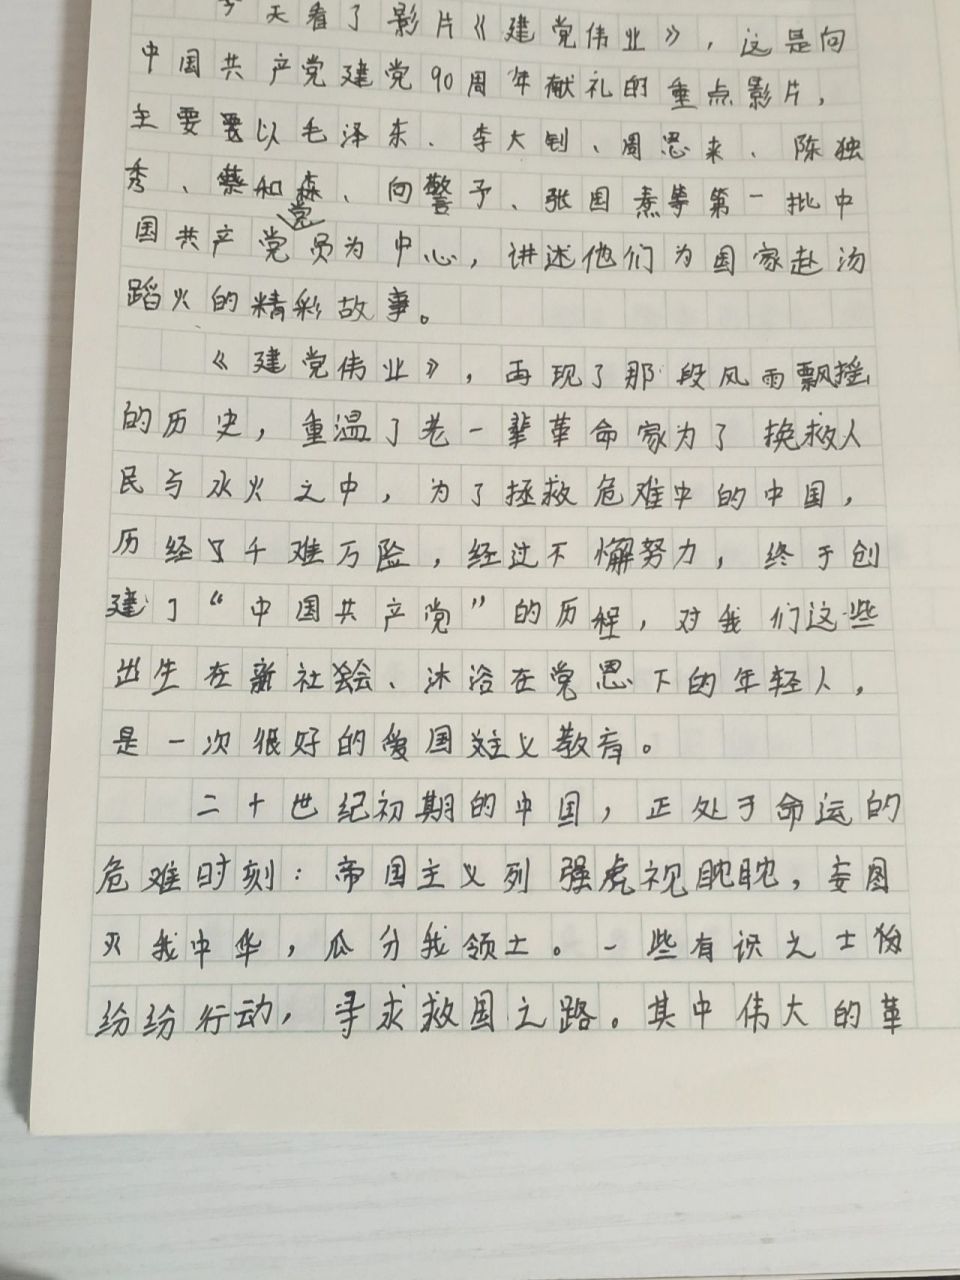 今天看了影片《建党伟业》，这是向
中国共产党建党90周年献礼的重点影片，
主要以毛泽东、李大钊、周恩来、陈独
秀、蔡和森、向警予、张国焘等第一批中
国共产党党员为中心，讲述他们为国家赴汤
蹈火的精彩故事。
《建党伟业》，再现了那段风雨飘摇
的历史，重温了老一辈革命家为了挽救人
民与水火之中，为了拯救危难中的中国，
历经了千难万险，经过不懈努力，终于创
建了“中国共产党”的历程，对我们这些
出生在新社会、沐浴在党恩下的年轻人，
是一次很好的爱国主义教育。
二十世纪初期的中国，正处于命运的
危难时刻：帝国主义列强虎视眈眈，妄图
灭我中华，瓜分我领土。一些有识之士
纷纷行动，寻求救国之路。其中伟大的革